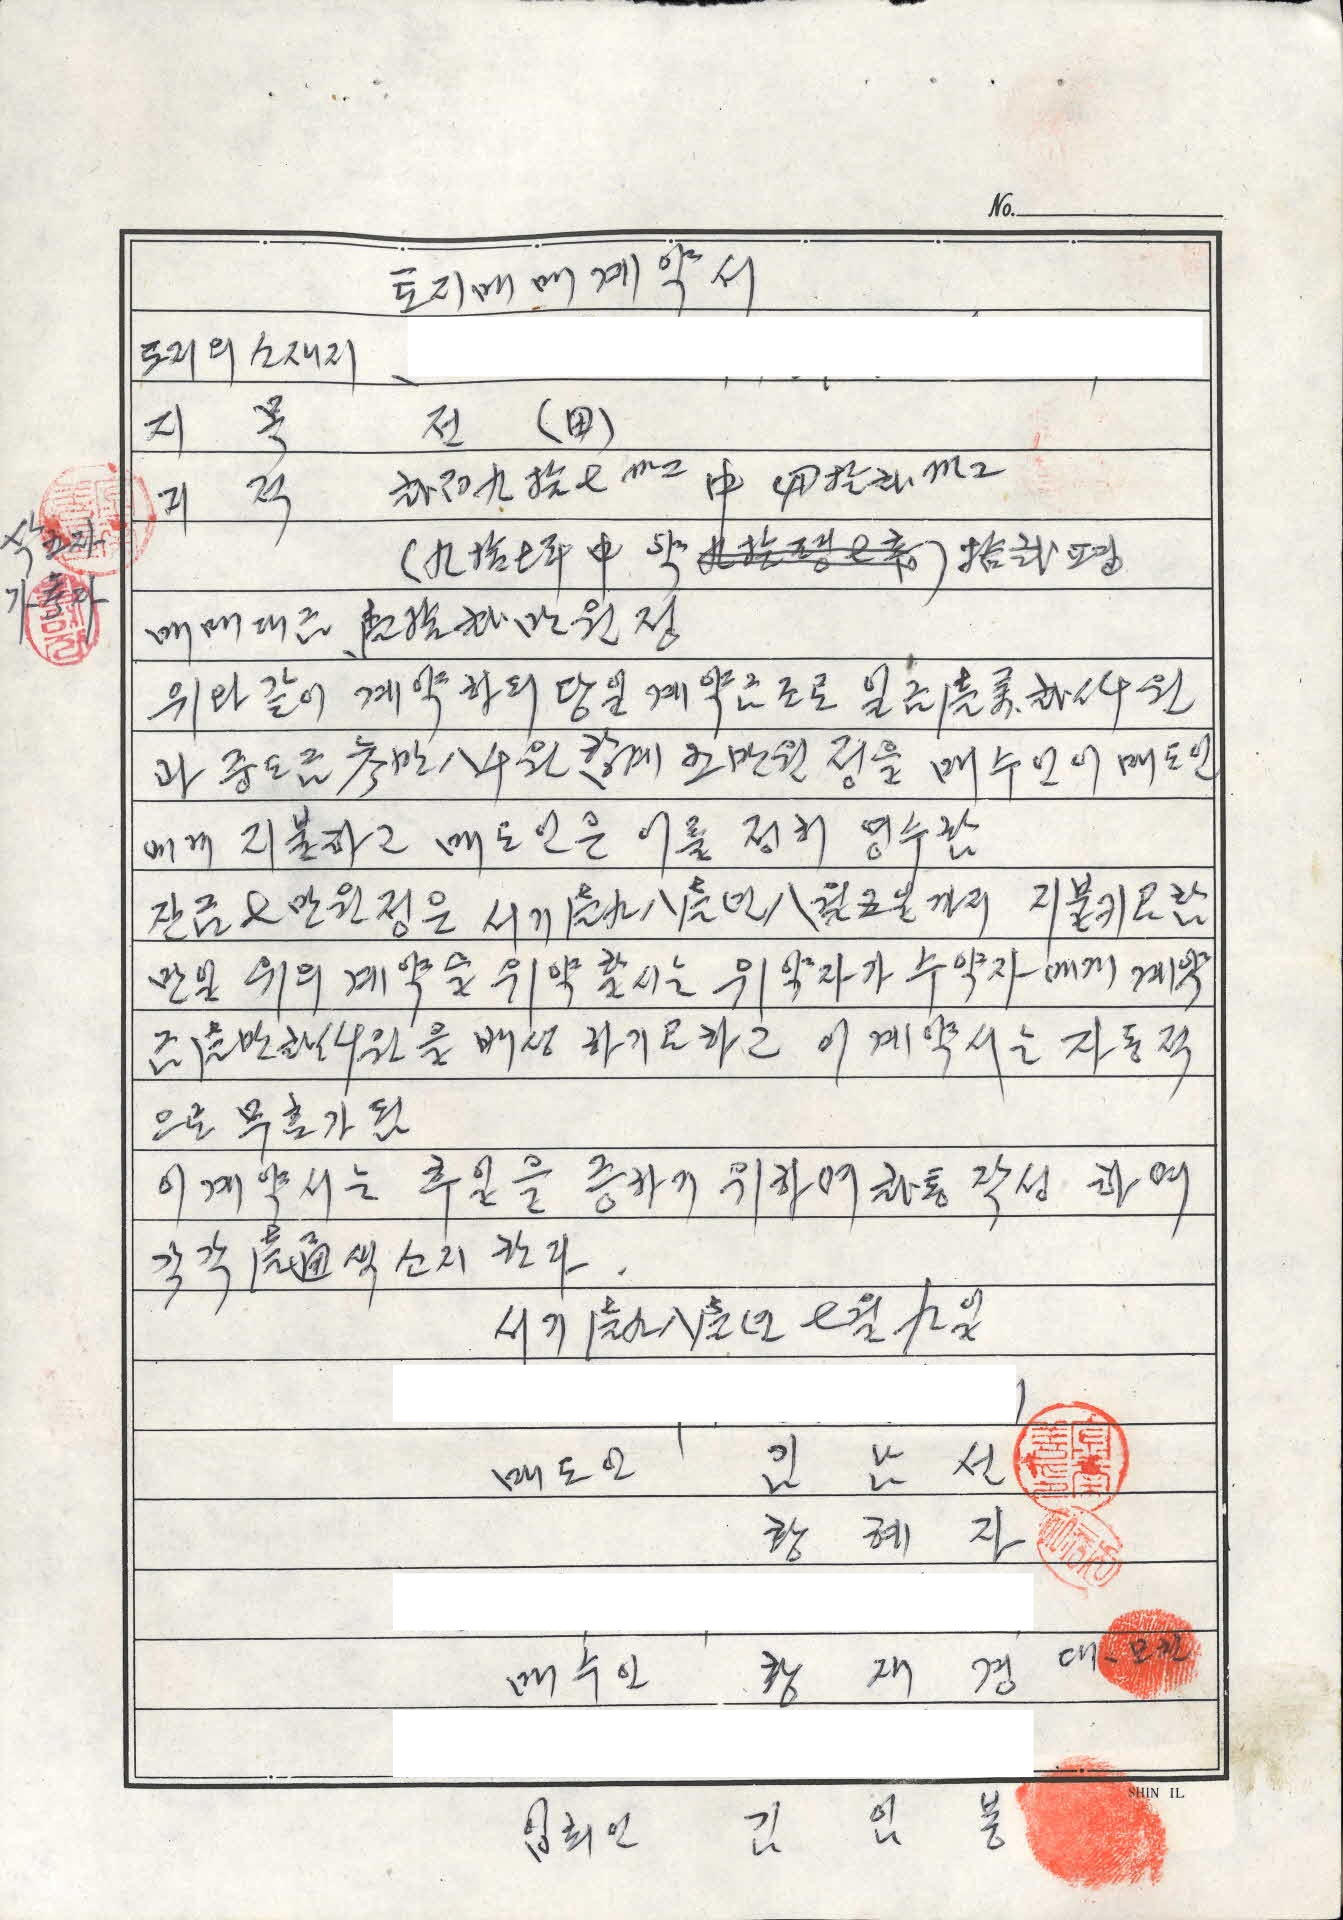 No.
토지매매계약서
토지의 소재지
지 목 전 (田)
지 적 弐百九拾七㎡ 中 四拾弐㎡
(九拾七坪 中 약 ) 拾弐평
삭 자
가 자
매매대금 壹拾弐만원정
위와 같이 계약하되 당일 계약금조로 일금壹萬弐仟원
과 중도금 参만八仟원 합계 五만원정을 매수인이 매도인
에게 지불하고 매도인은 이를 정히 영수함
잔금七만원정은 서기壹九八壹년八월五일까지 지불키로함
만일 위의 계약을 위약할시는 위약자가 수약자에게 계약
금壹만弐仟원을 배상하기로하고 이 계약서는 자동적
으로 무효가 됨
이 계약서는 후일을 증하기 위하여 弐통 작성 하여
각각 壹通씩 소지한다.
서기 壹九八壹년 七월 九일
매도인 김 남 선
황 혜 자
매수인 황 재 경 대 모친
입회인 김 인 봉
SHIN IL